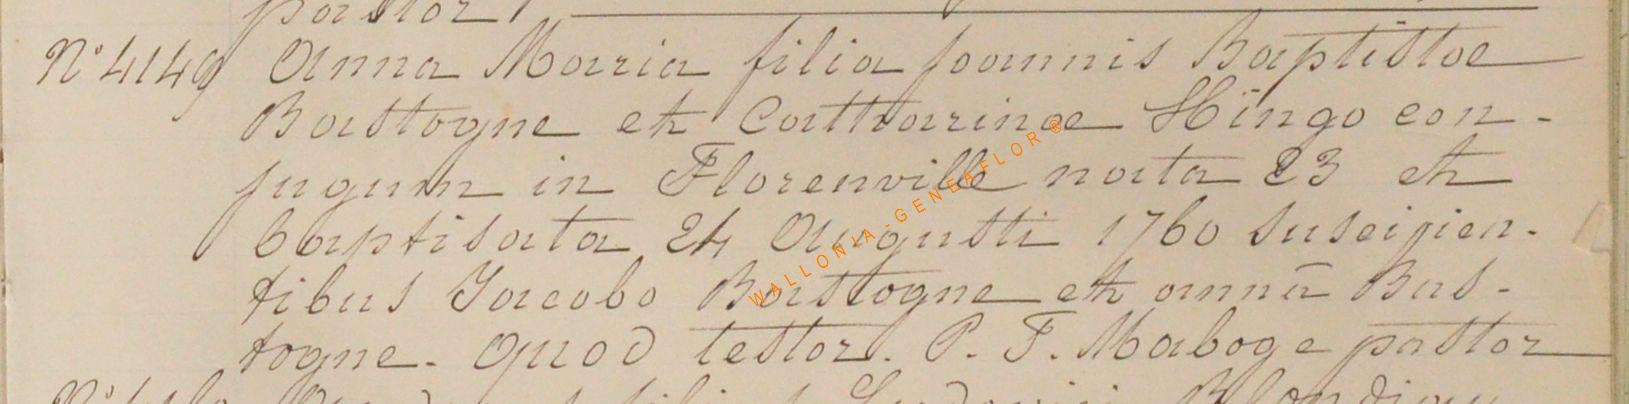 pastor
N° 4149 Anna Maria filia Joannis Baptistae
Bastogne et Catharinae Hingo con-
jugum in Florenville nata 23 et
baptisata 24 Augusti 1760 suscipien-
tibus Jacobo Bastogne et annā Bas-
togne. Quod testor. P. F. Maboge pastor
WALLONIA-GENEAFLOR ®